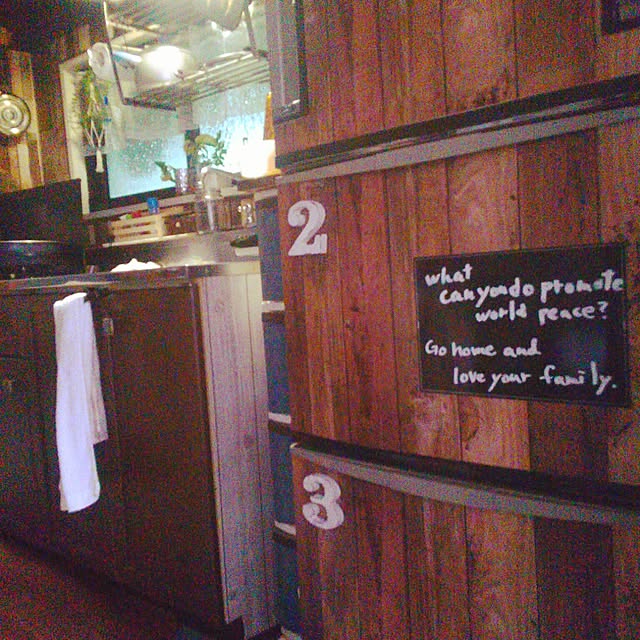 2
what
can you do promote
world peace?
Go home and
love your family.
3